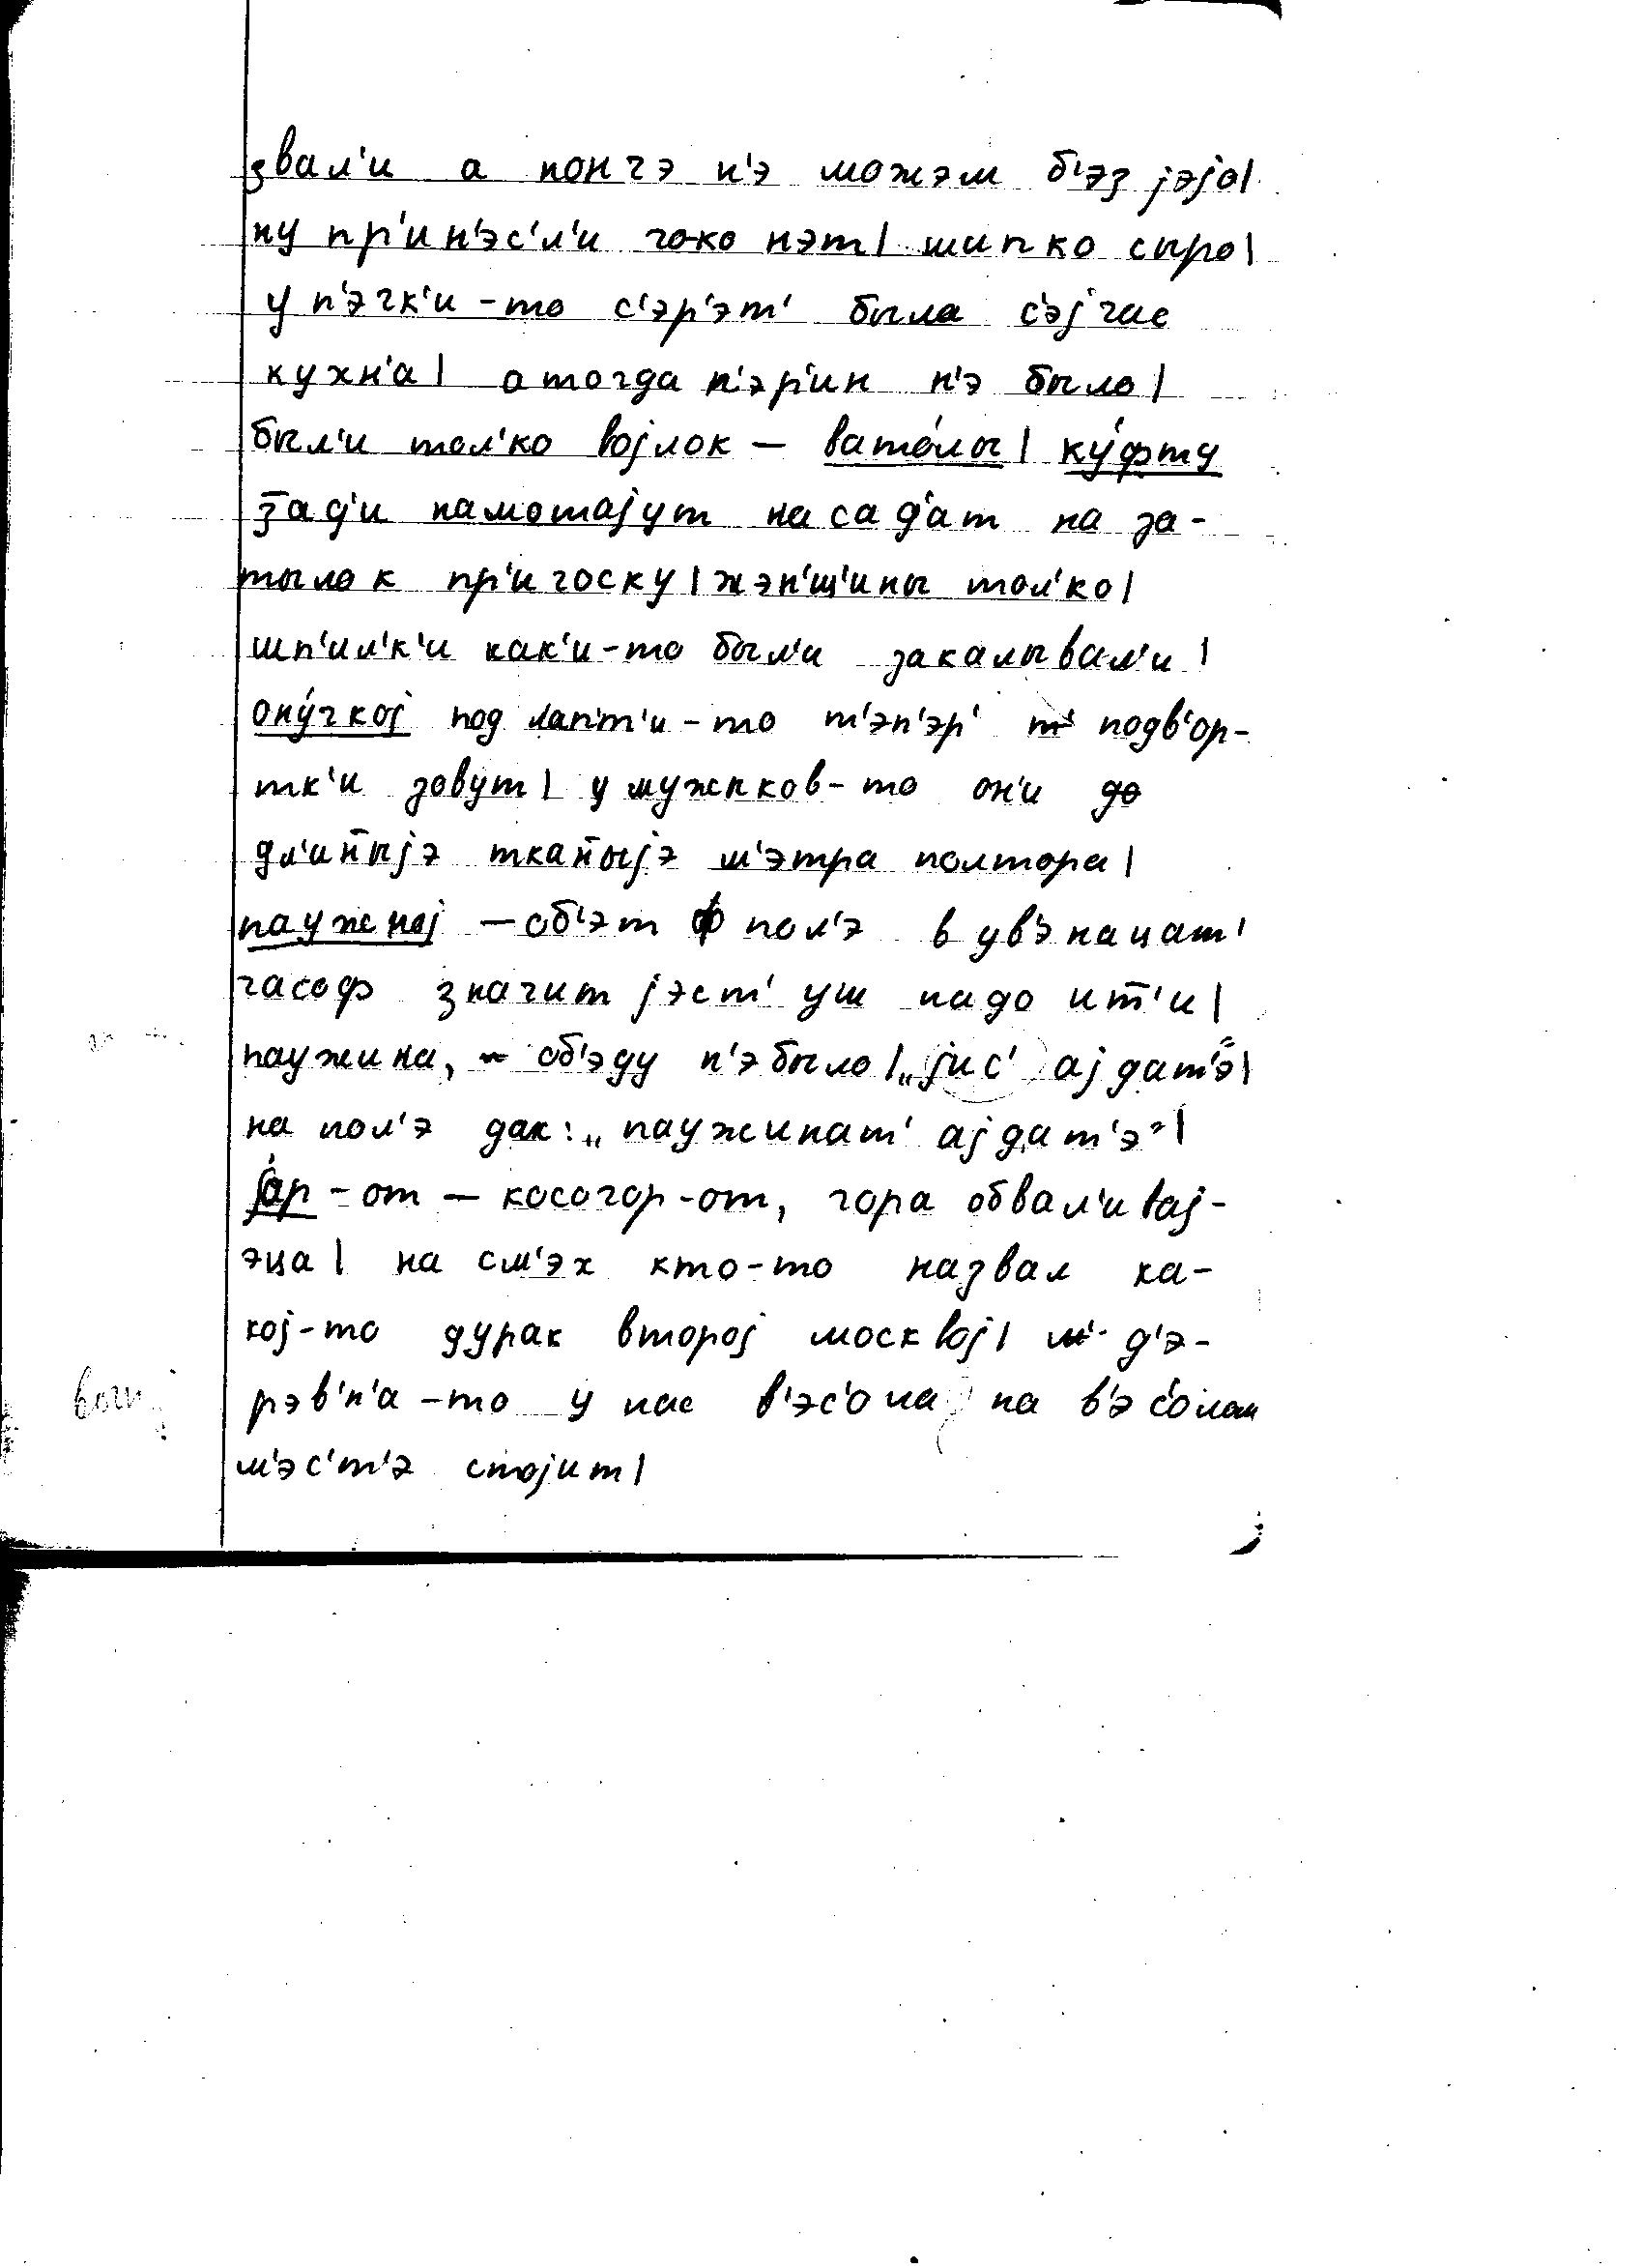 звал'и а нончэ н'э можэм б'эз јэјо|
ну пр'ин'эс'л'и чоко нэт| шипко сыро|
у п'эчк'и-то с'эр'эт' была с'эјчас
кухн'а| а тогда п'эр'ин н'э было|
был'и тол'ко војлок — вато́лы| ку́фту
з̄ад'и намотајут на сад'ат на за-
тылок пр'ичоску| жэн'щ'ины тол'ко|
шп'ил'к'и как'и-то был'и закалывал'и|
ону́чкој под лап'т'и-то т'эп'эр' подв'ор-
тк'и зовут| у мужыков-то он'и
дл'ин̄ыјэ ткан̄ыјэ м'этра полтора|
паужнај — об'эт ф пол'э в двэнацат'
часоф значит јэст' уш надо ит̄'и|
паужина, об'эду н'э было| „јис' ајдат'э"|
на пол'э дак: „паужинат' ајдат'э"|
ја́р-от — косогор-от, гора обвал'ивај-
эца| на см'эх кто-то назвал ка-
кој-то дурак второј москвој| д'э-
рэв'н'а-то у нас в'эс'ола на в'эс'олам
м'эс'т'э стојит|